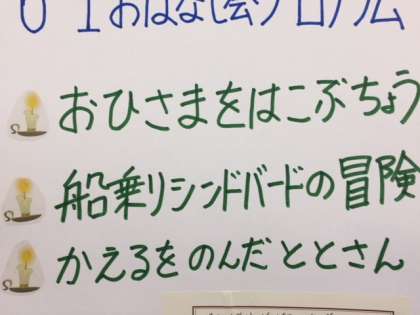 01おはなし会プログラム
おひさまをはこぶちょう
船乗りシンドバードの冒険
かえるをのんだととさん